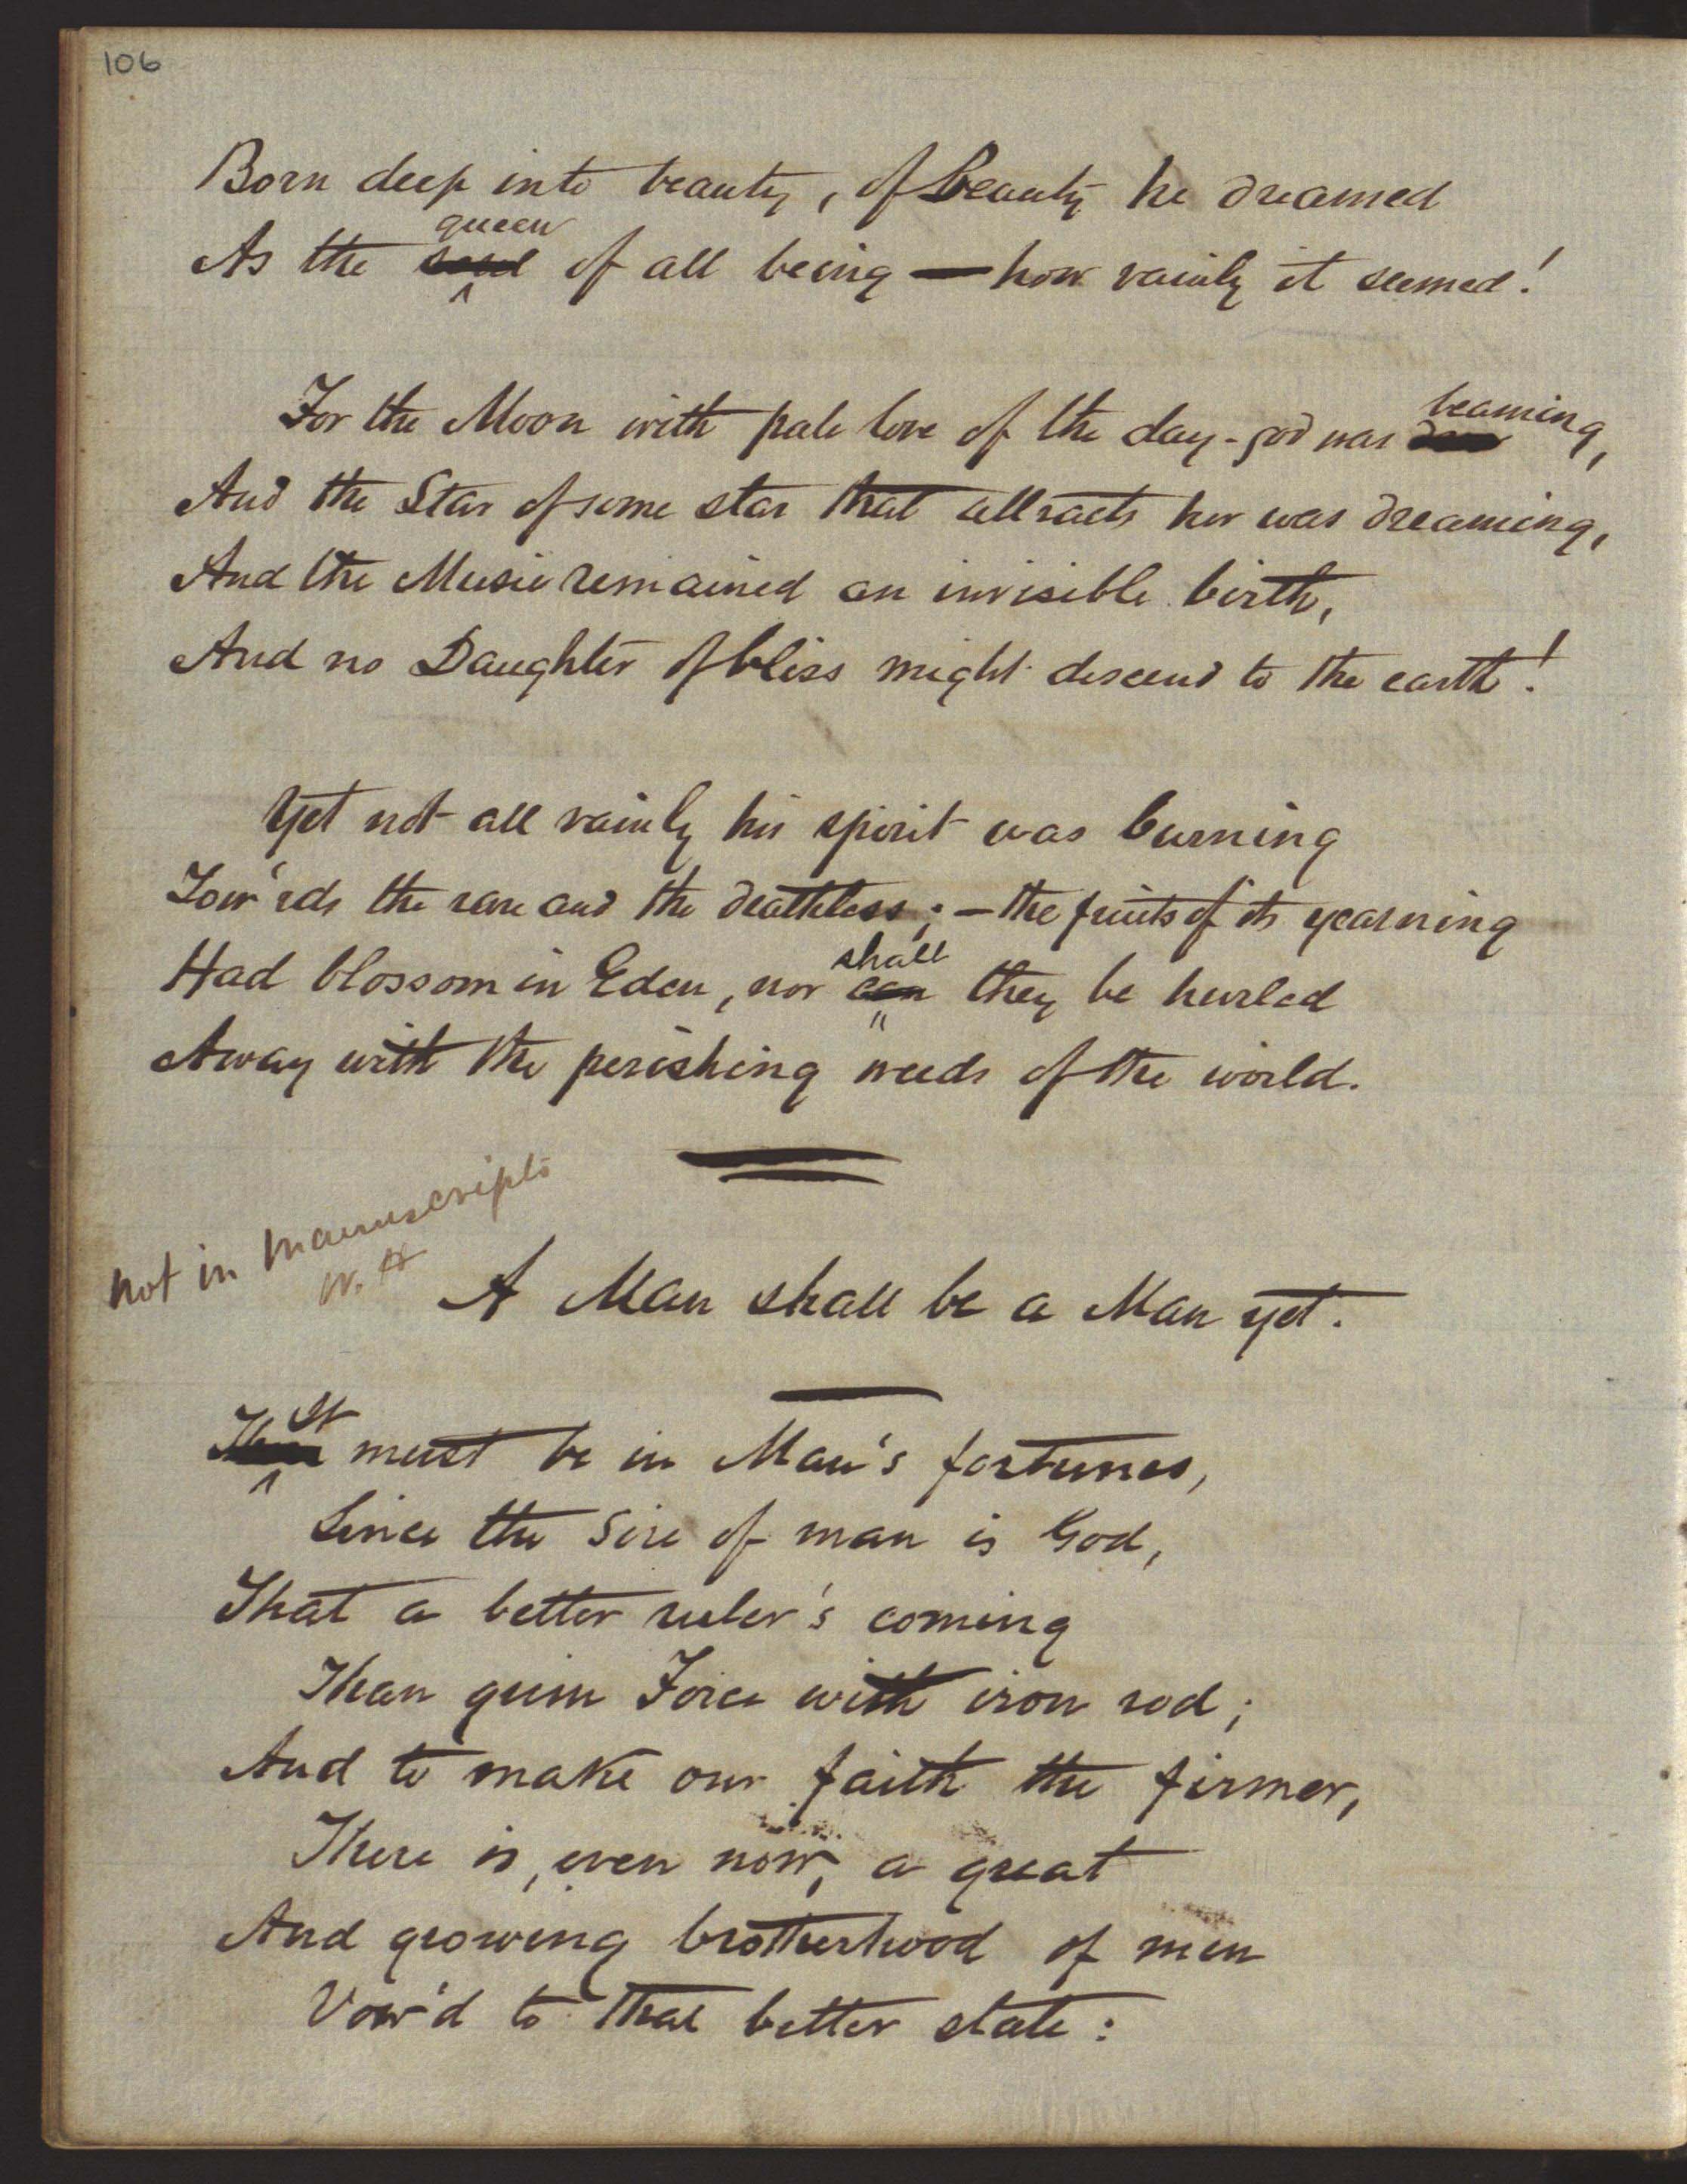 106
Born deep into beauty, of Beauty he dreamed
As the soul queen of all being — how vainly it seemed!
For the Moon with pale love of the day-god was beaming,
And the Star of some star that attracts her was dreaming,
And the Music remained an invisible birth,
And no Daughter of bliss might descend to the earth!
Yet not all vainly his spirit was burning
Tow'rds the rare and the deathless; — the fruits of its yearning
Had blossom in Eden, nor can shall they be hurled
Away with the perishing weeds of the world.
Not in Manuscripts
W. H
A Man shall be a Man yet.
It must be in Man's fortunes,
Since the Sire of man is God,
That a better ruler's coming
Than grim Force with iron rod;
And to make our faith the firmer,
There is, even now, a great
And growing brotherhood of men
Vow'd to that better state: